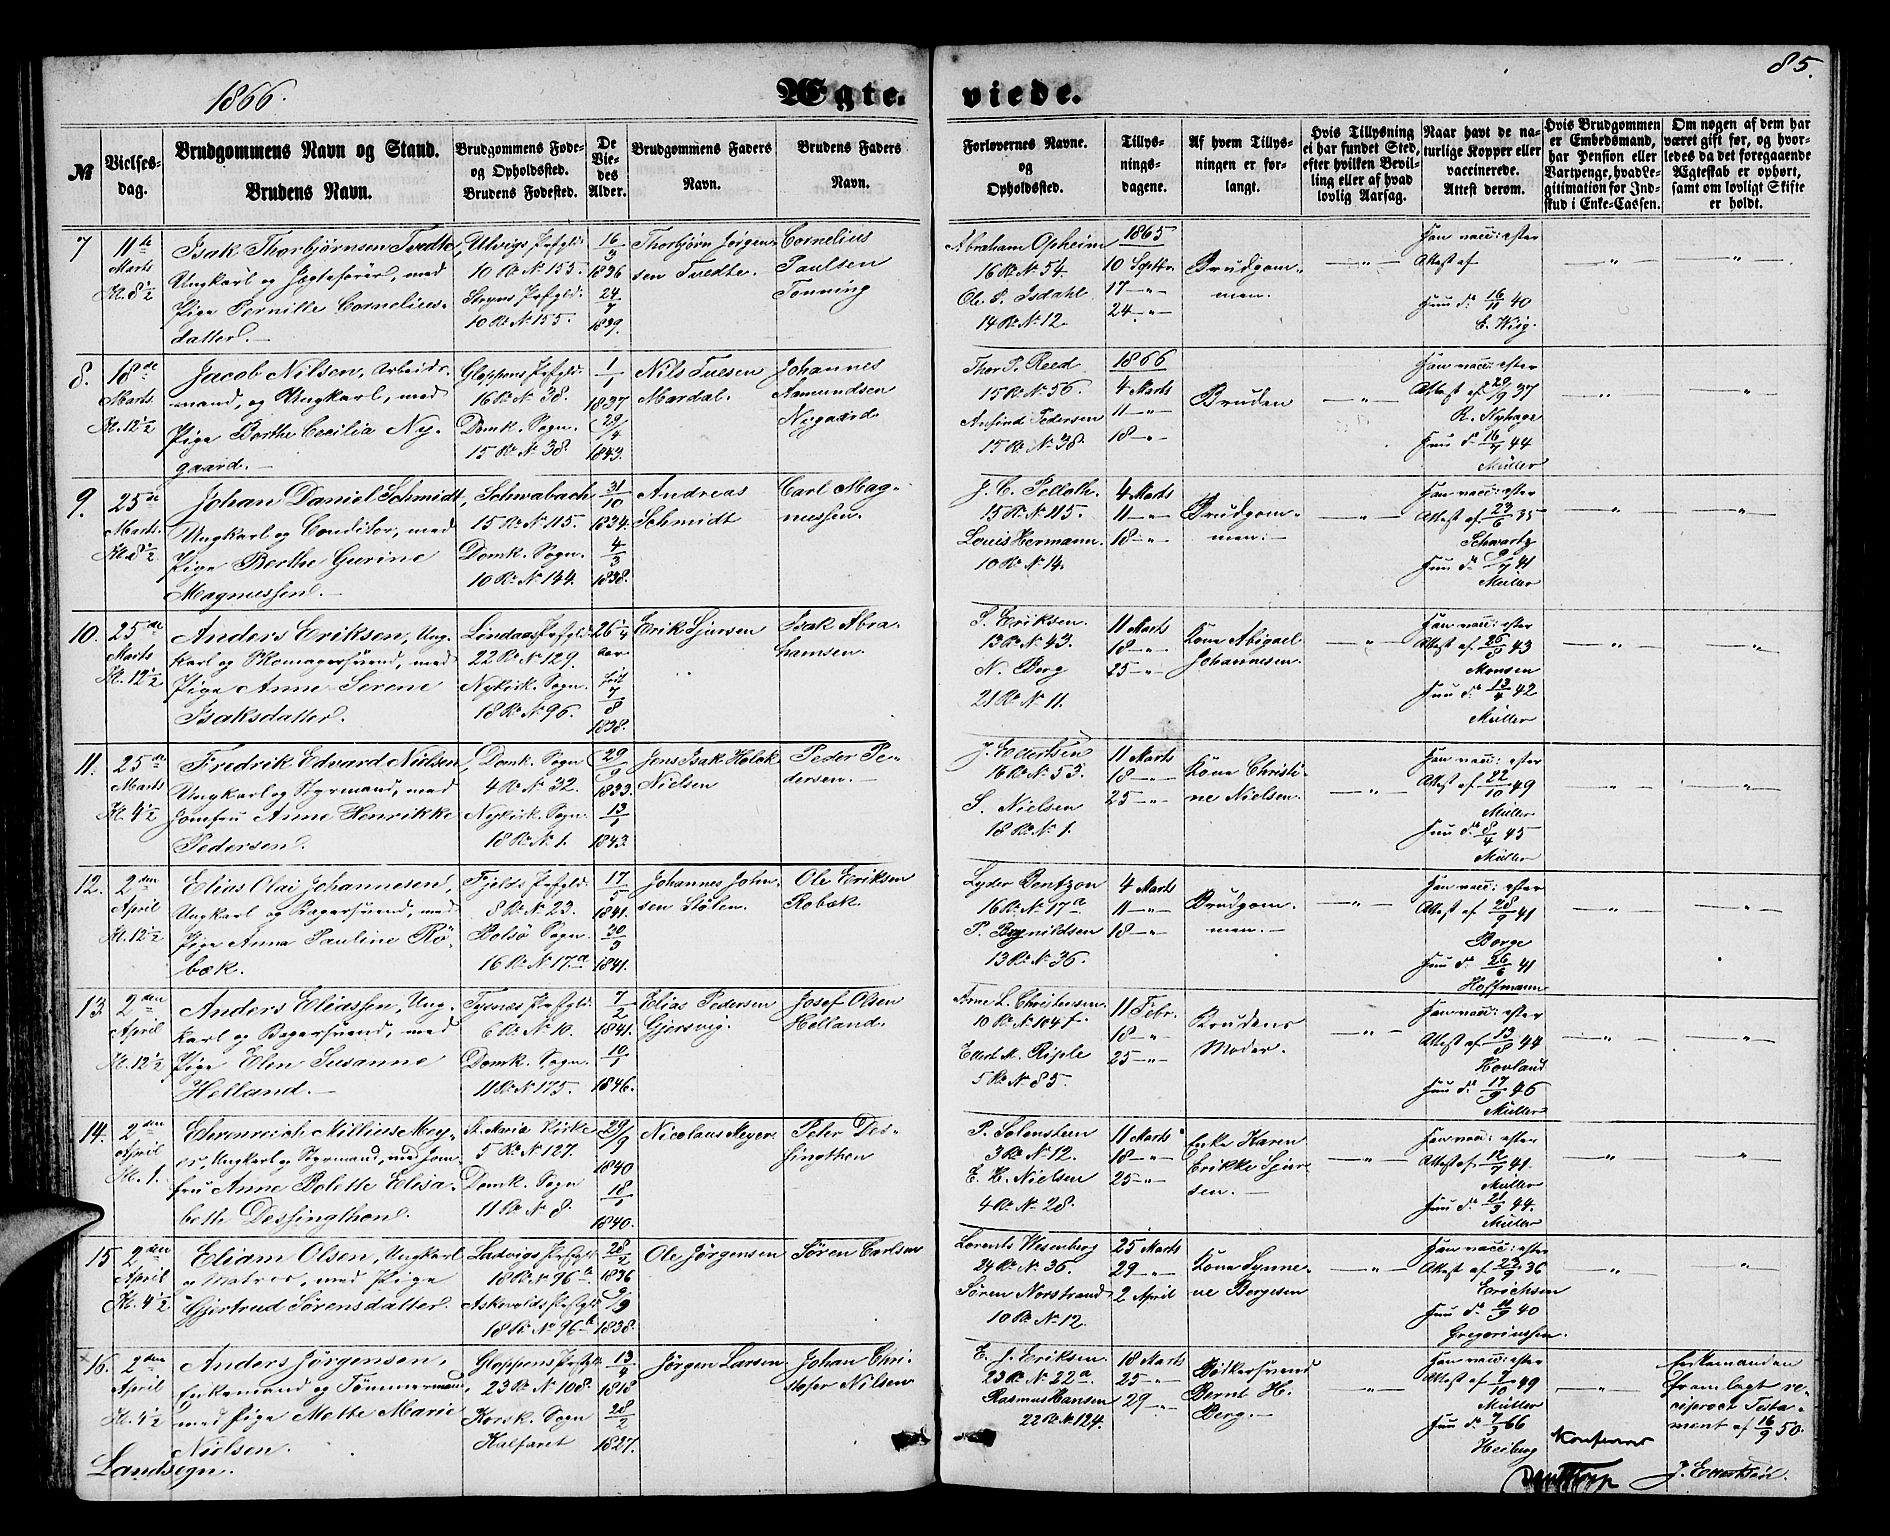 1866.
Ægte-
viede.
85.
№
Vielses-
dag.
Brudgommens Navn og Stand.
Brudens Navn.
Brudgommens Føde-
og Opholdssted.
Brudens Fødested.
De
Vie-
des
Alder.
Brudgommens Faders
Navn.
Brudens Faders
Navn.
Forlovernes Navne.
og
Opholdssted.
Tillys-
nings-
dagene.
Af hvem Tillys-
ningen er for-
langt.
Hvis Tillysning
ei har fundet Sted,
efter hvilken Bevil-
ling eller af hvad
lovlig Aarsag.
Naar havt de na-
turlige Kopper eller
vaccinerede.
Attest derom.
Hvis Brudgommen
er Embedsmand,
har Pension eller
Vartpenge, hvad Le-
gitimation for Ind-
skud i Enke-Cassen.
Om nogen af dem har
været gift før, og hvor-
ledes da det foregaaende
Ægteskab er ophørt,
samt om lovligt Skifte
er holdt.
7
11te
Marts
Kl. 8½
Isak Thorbjørnsen Tvedte,
Ungkarl og Jægtefører, med
Pige Pernille Cornelius-
datter.
Ulvigs Præstgld.
10 R. N 155.
Stryns Præstgld.
10 R. N 155.
16/3
1836
24/7
1839.
Thorbjørn Jørgen-
sen Tvedte.
Cornelius
Paulsen
Tonning
Abraham Opheim
16 R. N 54.
Ole P. Isdahl
14 R. N 12.
1865
10 Septbr
17 —"—
24 —"—
Brudgom-
men.
—"—
Han vacc: efter
Attest af
Hun do 16/11 40
E. Wiig.
—"—
—"—
8.
18de
Marts.
Kl. 12½
Jacob Nilsen, Arbeids-
mand, og Ungkarl, med
Pige Berthe Cecilia Ny-
gaard.
Gloppens Præstgld.
16 R. N 38.
Domk. Sogn.
15 R. N 38.
1/1
1837
29/4
1843.
Nils Tuesen
Mardal.
Johannes
Aamundsen
Nygaard
Thor P. Reed
15 R. N 56.
Anfind Pedersen
15 R. N 38.
1866
4 Marts
11 —"—
18 —"—
Bruden
—"—
Han vacc: efter
Attest af 29/9 37
R. Nyhage
Hun do 16/7 44
Müller
—"—
—"—
9.
25de
Marts.
Kl. 8½
Johan Daniel Schmidt,
Ungkarl og Conditor, med
Pige Berthe Gurine
Magnussen.
Schwabach
15 R. N 115.
Domk. Sogn.
10 R. N 144.
31/10
1834.
4/3
1838.
Andreas
Schmidt
Carl Mag-
nussen.
J. C. Polloth.
15 R. N 115.
Louis Hermann.
10 R. N 14.
4 Marts
11 —"—
18 —"—
Brudgom-
men.
—"—
Han vacc: efter
Attest af 23/6 35
Schwartz
Hun do 9/7 41
Müller
—"—
—"—
10.
25de
Marts
Kl. 12½
Anders Eriksen, Ung-
karl og Skomagersvend, med
Pige Anne Serene
Isaksdatter.
Lindaas Præstgld.
22 R. N 129.
Nykirk. Sogn.
18 R. N 96.
26¼
Aar
født
7/8
1838.
Erik Sjursen
Isak Abra-
hamsen.
S. Eriksen.
13 R. N 43.
N. Berg
21 R. N 11.
11 Marts
18 —"—
25 —"—
Kone Abigael
Johannesen.
—"—
Han vacc: efter
Attest af 26/8 43
Monsen
Hun do 13/4 42
Müller
—"—
—"—
11.
25de
Marts
Kl. 4½
Fredrik Edvard Nielsen,
Ungkarl og Styrmand, med
Jomfru Anne Henrikke
Pedersen.
Domk. Sogn
4 R. N 32.
Nykirk. Sogn.
18 R. N 1.
29/9
1833.
13/1
1843.
Jens Isak Holck
Nielsen
Peder Pe-
dersen.
J. Ellertsen
16 R. N 53.
S. Nielsen
18 R. N 1.
11 Marts
18 —"—
25 —"—
Kone Christi-
ne Nielsen.
—"—
Han vacc: efter
Attest af 22/10 49
Müller
Hun do 8/4 45
Müller
—"—
—"—
12.
2den
April
Kl. 12½
Elias Olai Johannesen,
Ungkarl og Bagersvend, med
Pige Anna Pauline Rö-
bæk.
Fjelds Præstgld.
8 R. N 23.
Bolsö Sogn.
16 R. N 17.a
17/5
1841.
30/5
1841.
Johannes John-
sen Stølen.
Ole Eriksen
Robæk.
Lyder Bentzon
16 R. N 17a
P. Bøgnildsen
13 R. N 36.
4 Marts
11 —"—
18 —"—
Brudgom-
men.
—"—
Han vacc: efter
Attest af 28/9 41
Borge
Hun do 26/6 41
Hoffmann
—"—
—"—
13
2den
April
Kl. 12½
Anders Eliassen, Ung-
karl og Bagersvend, med
Pige Elen Susanne
Helland.
Tysnes Præstgld.
6 R. N 10.
Domk. Sogn.
11 R. N 175.
7/2
1841.
10/1
1846.
Elias Pedersen
Gjersvig.
Josef Olsen
Helland.
Arne L. Christensen.
10 R. N 104f.
Ellert M. Riple
5 R. N 85.
11 Febr.
18 —"—
25 —"—
Brudens
Moder.
—"—
Han vacc: efter
Attest af 13/8 44
Hovland
Hun do 17/9 46
Müller
—"—
—"—
14.
2den
April
Kl. 1.
Ehrenreich Nillius Mey-
er, Ungkarl og Styrmand, med Jom-
fru Anne Bolette Elisa-
beth Dessingthon.
St. Maria Kirke
5 R. N 127.
Domk. Sogn
11 R. N 8.
29/9
1840
18/1
1840.
Nicolaus Meyer
Peter Des-
singthon
P. Solensteen
3 R. N 12.
E. H. Nielsen
4 R. N 28.
11 Marts
18 —"—
25 —"—
Enke Karen
Erikke Sjur-
sen.
—"—
Han vacc: efter
Attest af 12/7 41.
Müller
Hun do 21/3 44.
Müller
—"—
—"—
15
2den
April
Kl. 4½
Eliam Olsen, Ungkarl
og Matros, med Pige
Gjertrud Sørensdatter.
Ladvigs Præstgld.
18 R. N 96b
Askevolds Præstgld.
18 R. N 96b
28/2
1836
9/9
1838.
Ole Jørgensen
Søren Carlsen
Lorents Wesenberg
24 R. N 36.
Søren Norstrand
10 R. N 12.
25 Marts
29 —"—
2 April
Kone Synne-
ve Børgesen
—"—
Han vacc: efter
Attest af 23/9 36
Erichsen
Hun do 14/9 40
Gregoriussen.
—"—
—"—
16.
2den
April
Kl. 4½
Anders Jørgensen,
Enkemand og Tømmermand
med Pige Mette Marie
Nielsen.
Landsogn.
Gloppens Præstgld.
23 R. N 108.
Korsk. Sogn
Kalfaret
13/4
1818
28/2
1827.
Jørgen Larsen
Johan Chri-
stofer Nilsen
E. J. Eriksen.
23 R. N 22a.
Rasmus Hansen
22 R. N 124.
18 Marts
25 —"—
29 —"—
Bødkersvend
Bernt H.
Berg.
—"—
Han vacc: efter
Attest af 7/10 49
Müller
Hun do 7/3 66
Heiberg
—"—
Enkemanden
fremlagt re-
ciproct Testa-
ment af 16/9 50.
Konfereret
J. Ellertsen.